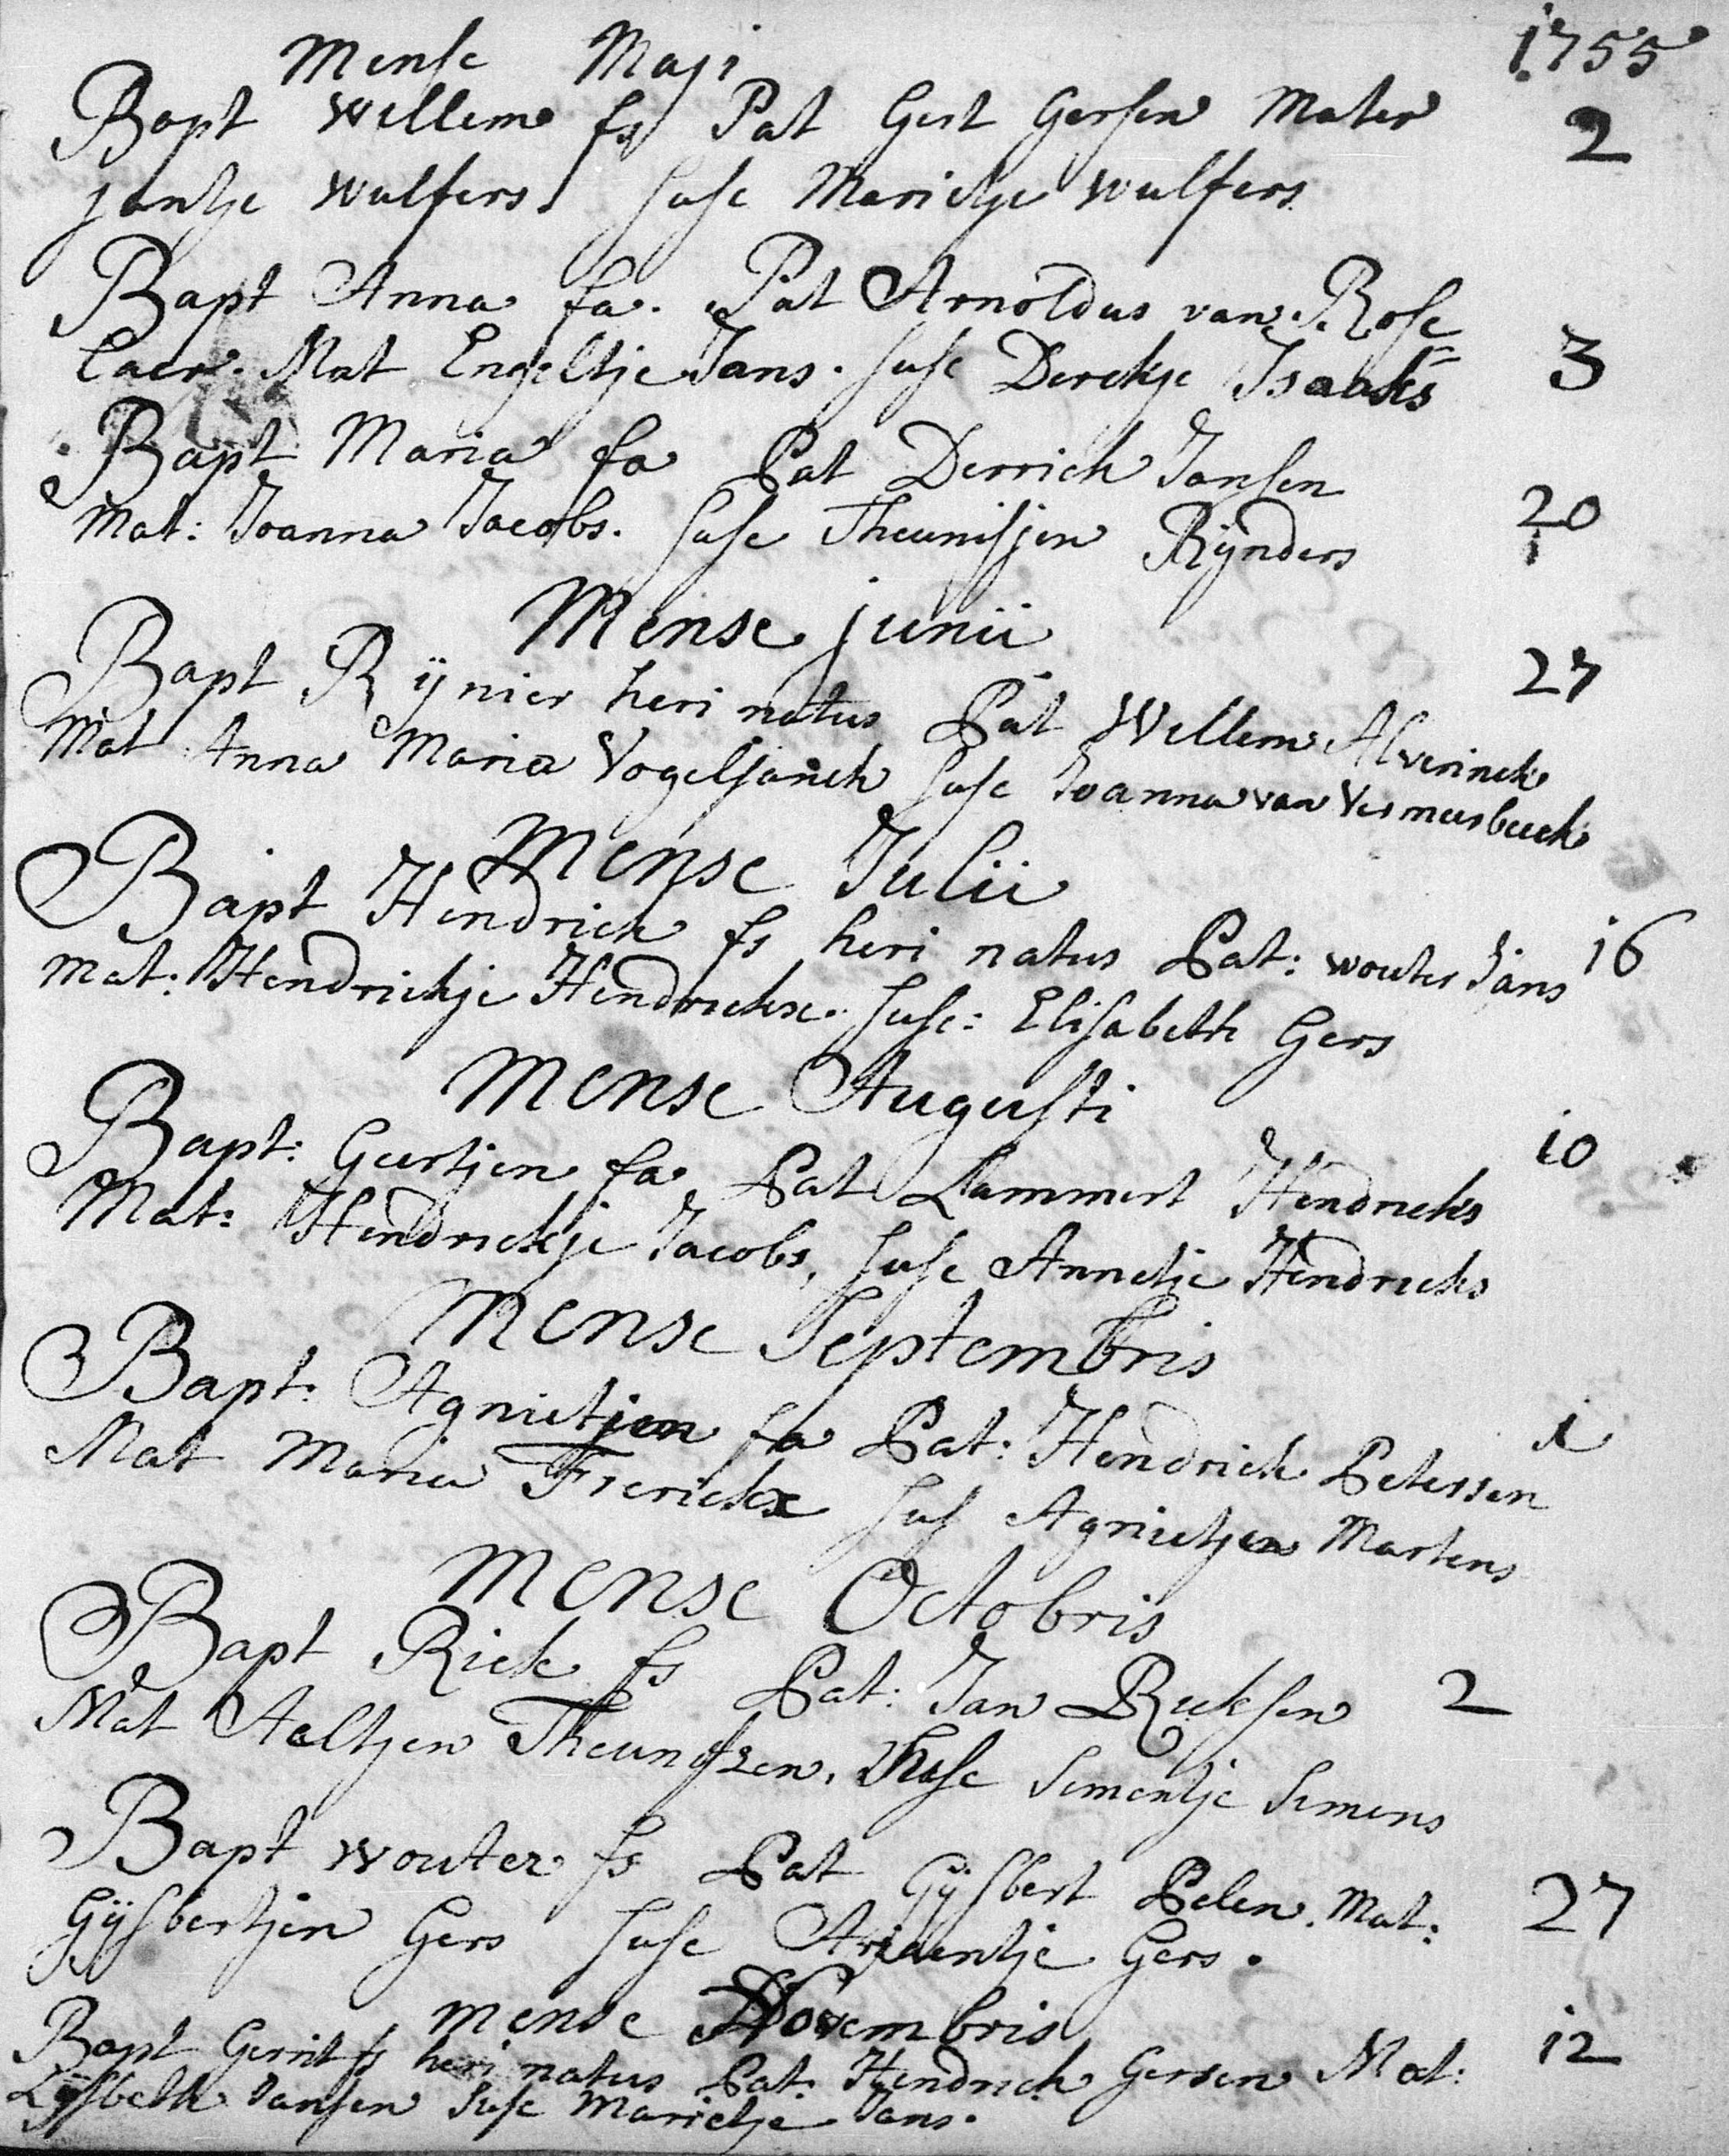 Mense Maji 1755
Bapt Willem fs Pat Gert Gersen Mater 2
jantje Wulfers. Susc Marietje Wulfers
Bapt Anna fa. Pat Arnoldus van Rose
laer. Mat Engeltje Jans. Susc Derckje Isaaks 3
Bapt Maria fa Pat Derrick Jansen
Mat: Joanna Jacobs. Susc Theunisjen Rÿnders 20
Mense junii
Bapt Rÿnier heri natus Pat Willem Alverinck 27
Mat Anna Maria Vogelsanck Susc Joanna van Vermeerbeeck
Mense Julii
Bapt Hendrick fs heri natus Pat: wouter Jans 16
Mat: Hendrickje Hendrickx. Susc: Elisabeth Gers
Mense Augusti
Bapt: Geertjen fa Pat Lammert Hendricks 10
Mat: Hendrickje Jacobs, Susc Annetje Hendricks
Mense Septembris
Bapt: Agnietjen fa Pat: Hendrick Petersen 1
Mat Maria Frerickx Sus Agnietjen Martens
Mense Octobris
Bapt Rick fs Pat: Jan Ricksen 2
Mat Aeltjen Theunissen. Susc Simentje Simens
Bapt wouter fs Pat Gÿsbert Pelen. Mat: 27
Gÿsbertjen Gers Susc Ariaentje Gers.
Mense Novembris
Bapt Gerrit fs heri natus Pat: Hendrick Gersen Mat: 12
Lÿsbeth Jansen Susc Marietje Jans.